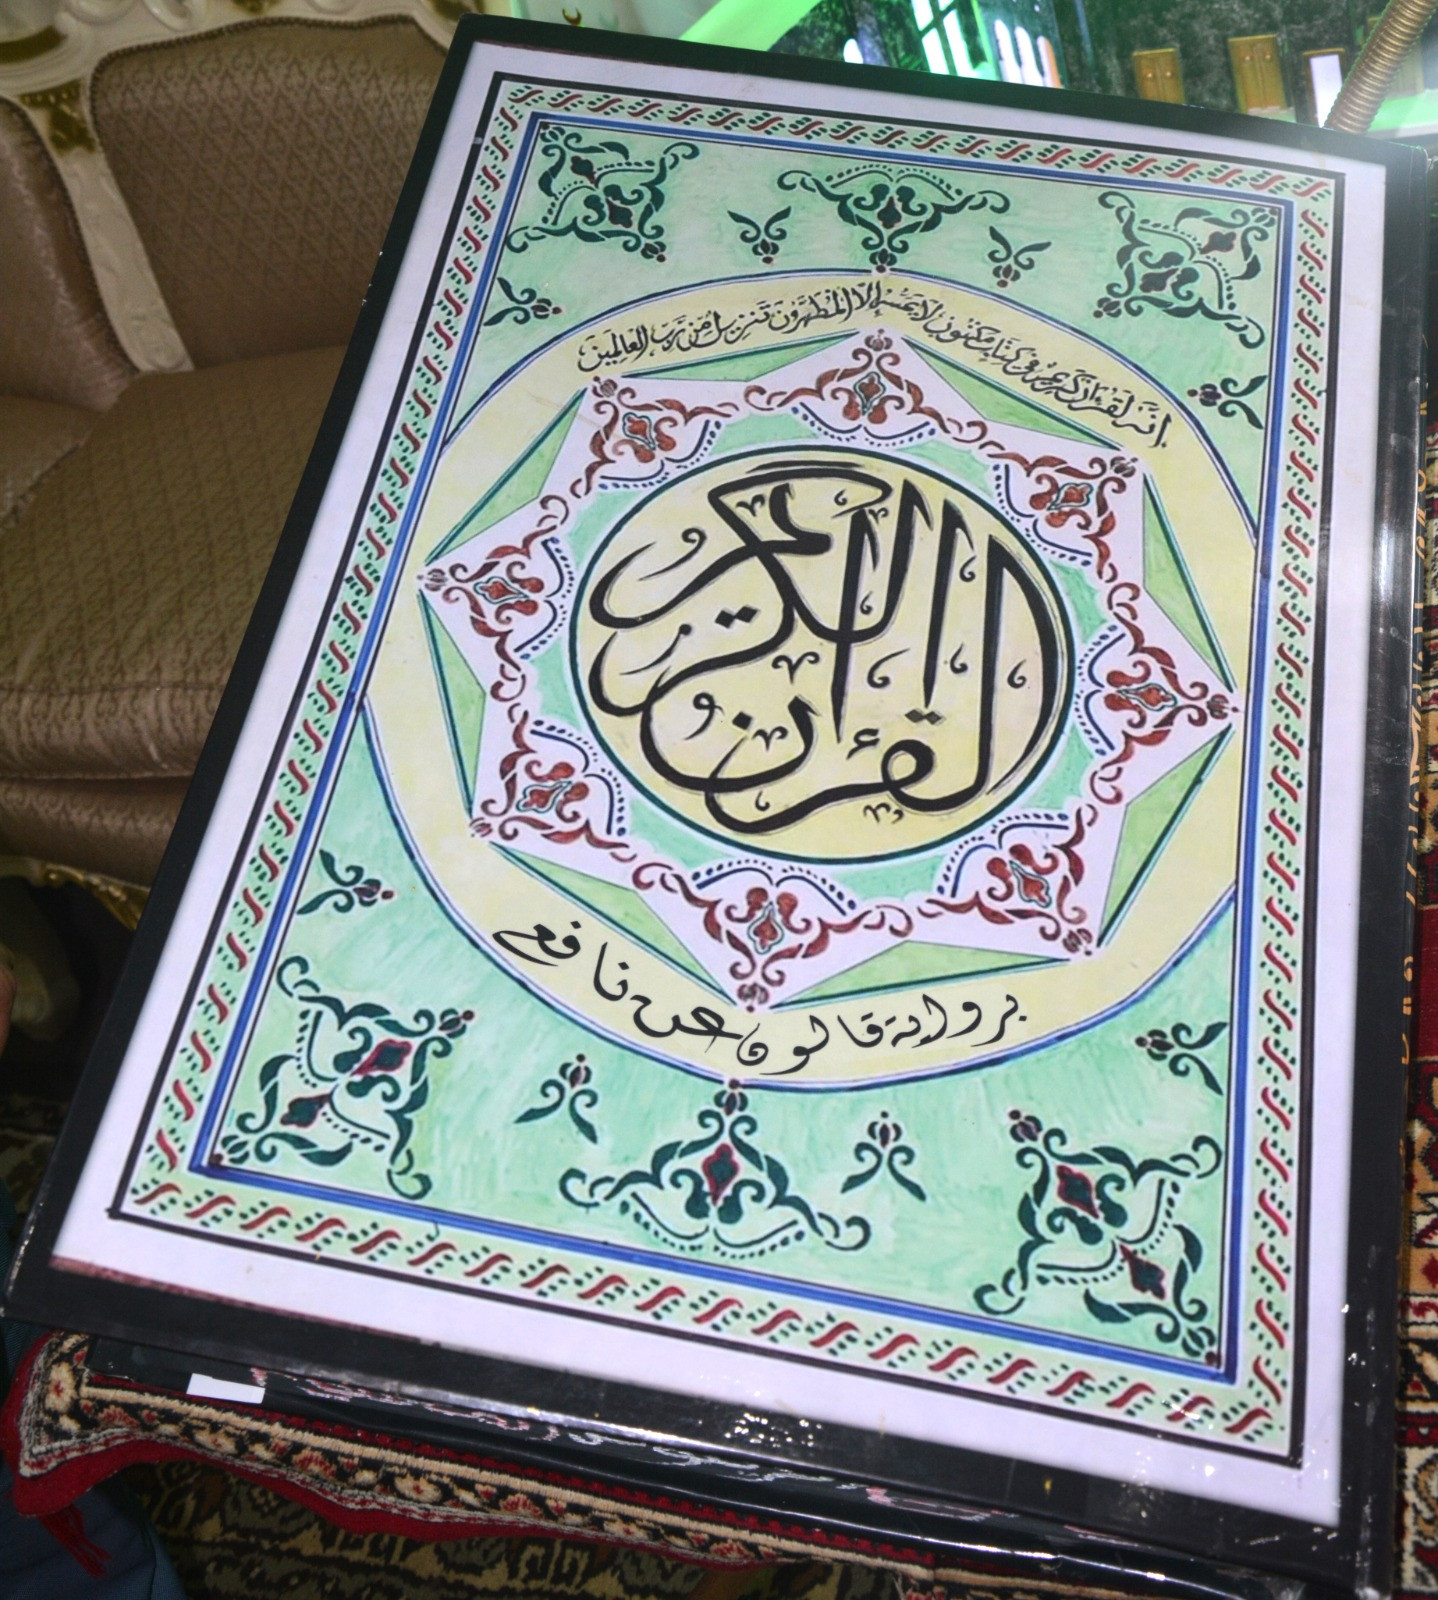 انه لقرءان كريم في كتاب مكنون لا يمسه إلا المطهرون تنزيل من رب العالمين
القرءان الكريم
برواية قالون عن نافع